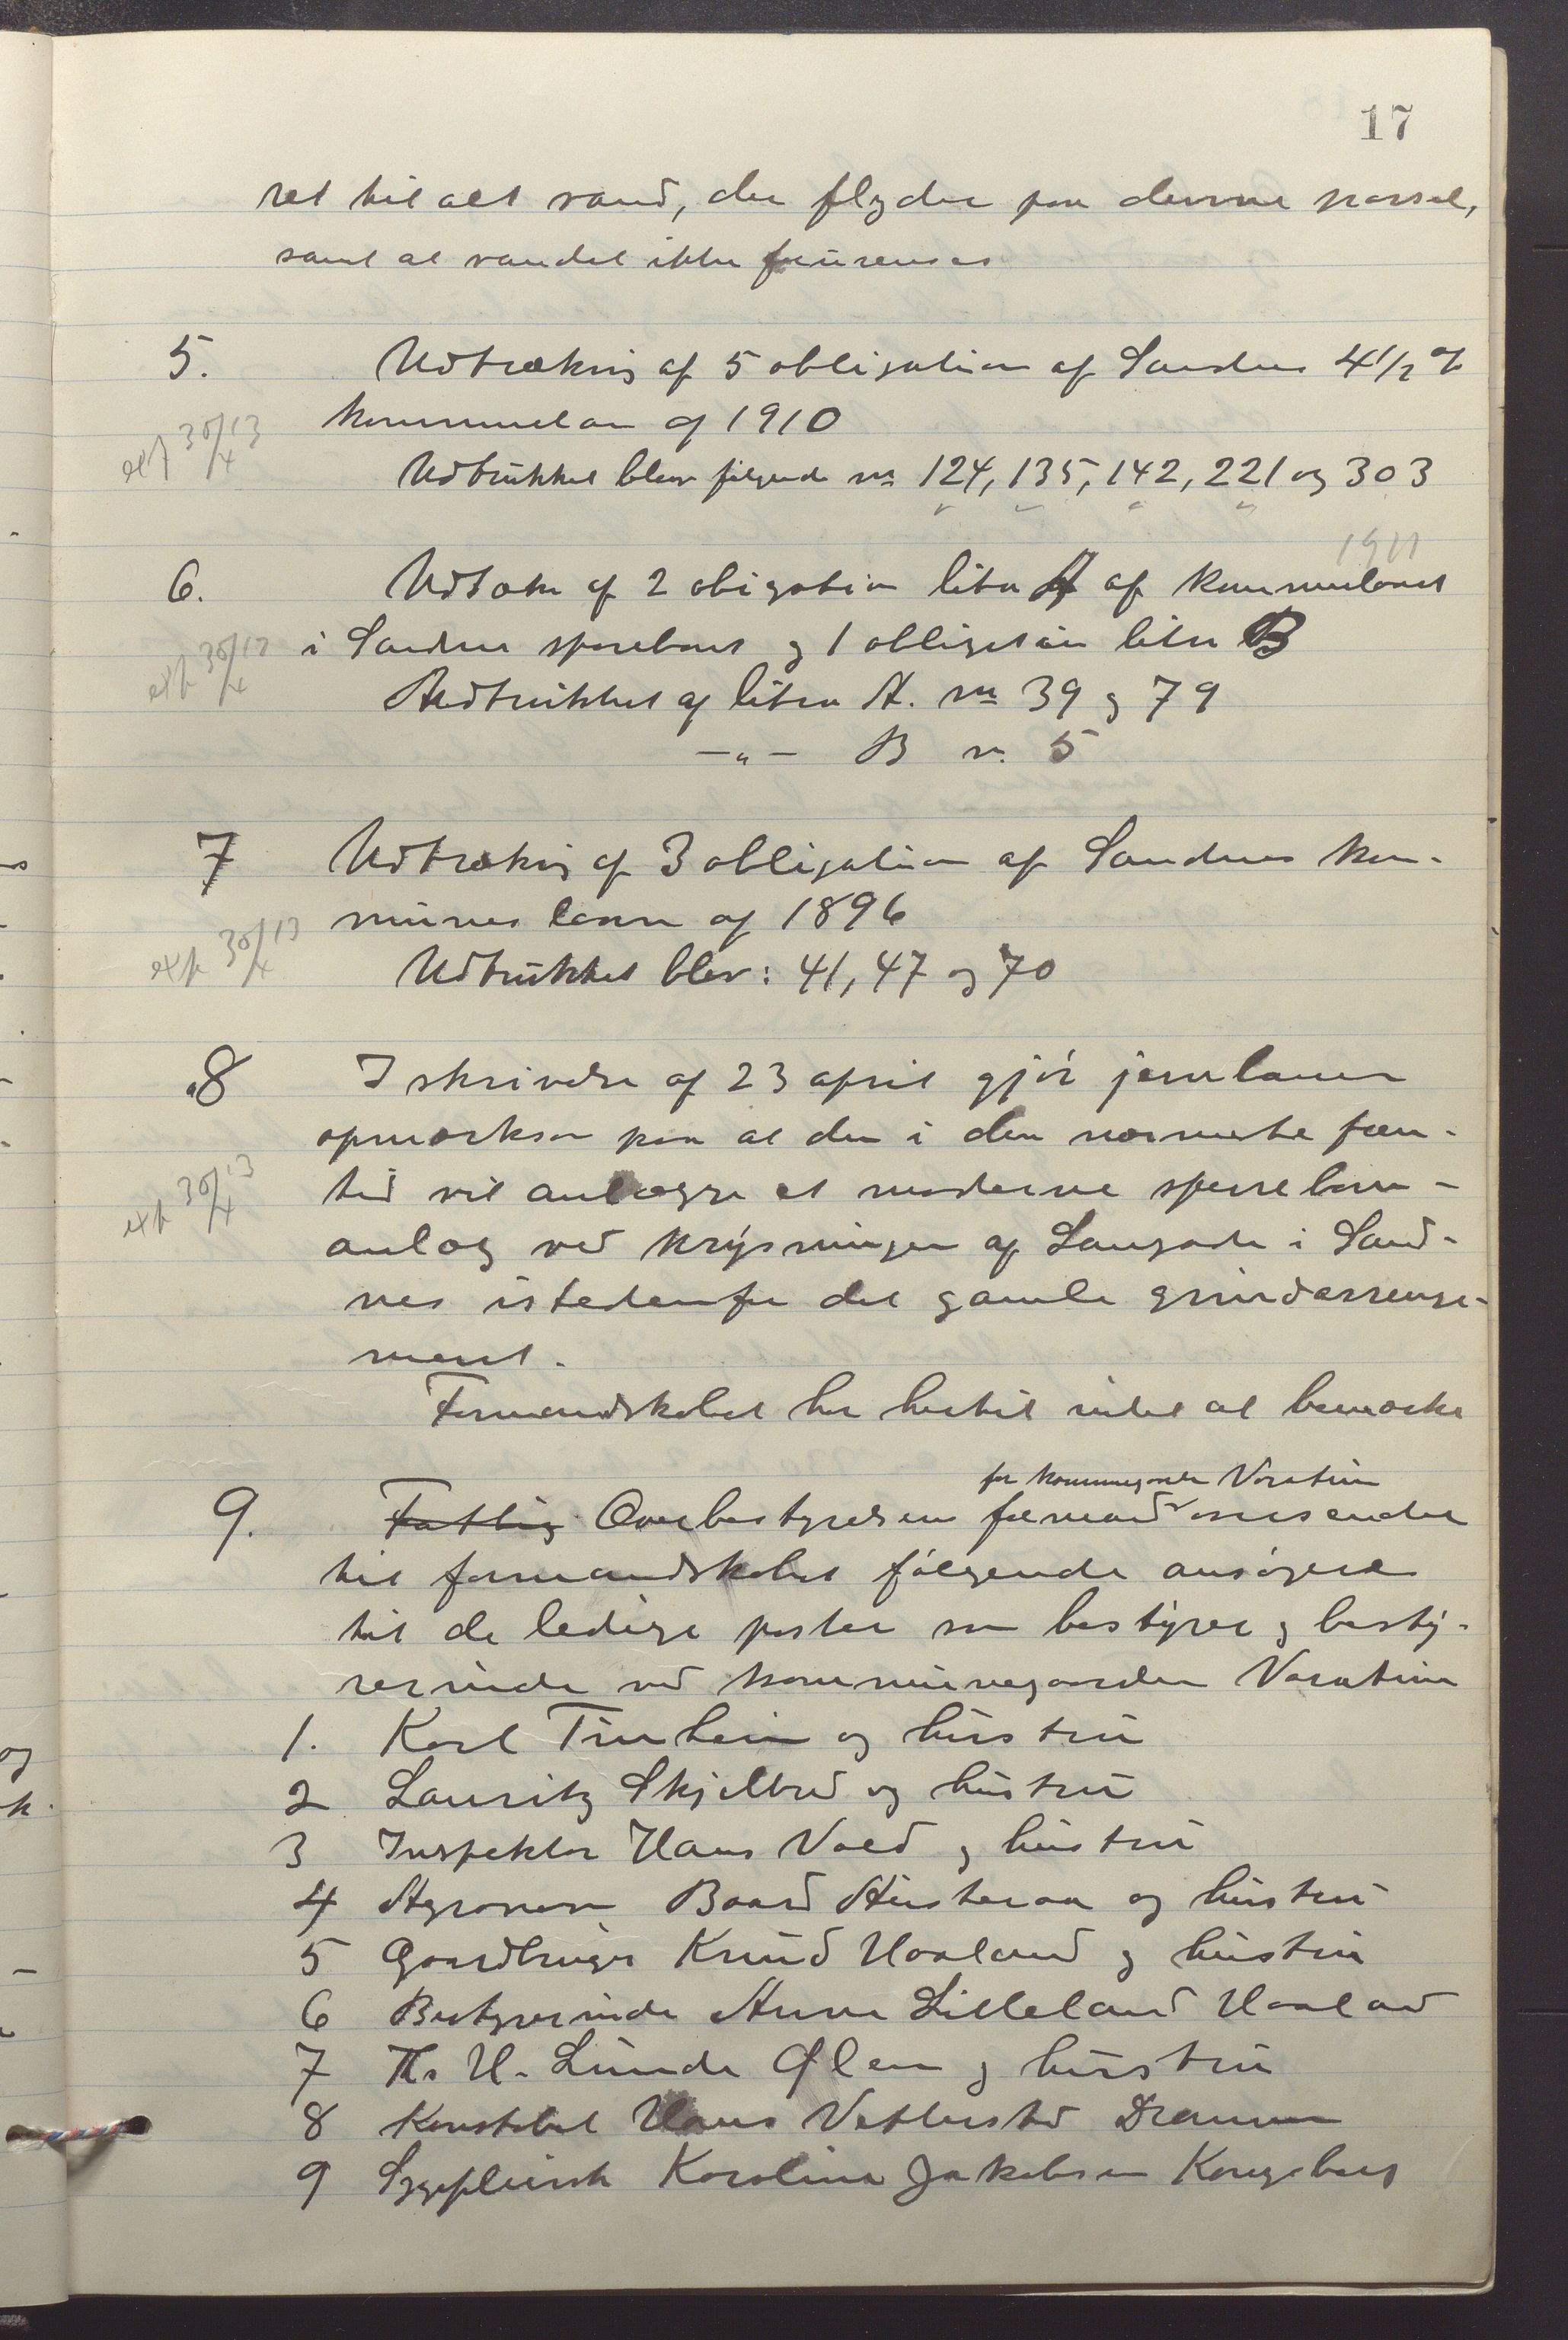 17
ret til alt vand, der flyder paa denne parsel,
samt at vandet ikke forurenses
5. Udtrækning af 5 obligation af Sandnes 4 1/2 %
kommunelaan af 1910
exp 30/4 13
Udtrukket blev følgende nr 124, 135, 142, 221 og 303
1911
6. af 2 obigation litra A af kommunelaanet
i Sandnes sparebank og 1 obligation litra B
exp 30/4 13
Udtrukket af litra A. nr 39 og 79
—"— B nr. 5
7 Udtrækning af 3 obligation af Sandnes kom-
munes laan af 1896
exp 30/4 13
Udtrukket blev: 41, 47 og 70
8 I skrivelse af 23 april gjør jernbanen
opmerksom paa at den i den nærmeste frem-
tid vil anlægge et moderne sperrebom-
exp 30/4 13
anlæg ved krysningen af Langgaden i Sand-
nes istedenfor det gamle grindarrange-
ment.
Formandskabet har hertil intet at bemærke
for kommunegaarden Varatun
9. Fattig Overbestyrelsens formand oversender
til formandskabet følgende ansøgere
til de ledige poster som bestyrer og besty-
rerinde ved kommunegaarden Varatun
1. Karl Tunheim og hustru
2 Lauritz Skjelbred og hustru
3 Inspektør Hans Vold og hustru
4 Agronom Baard og hustru
5 Gaardbruger Knud Haaland og hustru
6 Bestyrerinde Anna Lilleland Haaland
7 Th. H. Lunde Ølen og hustru
8 Konstabel Hans Drammen
9 Sygepleiersk Karolina Jakobsen Kongsberg